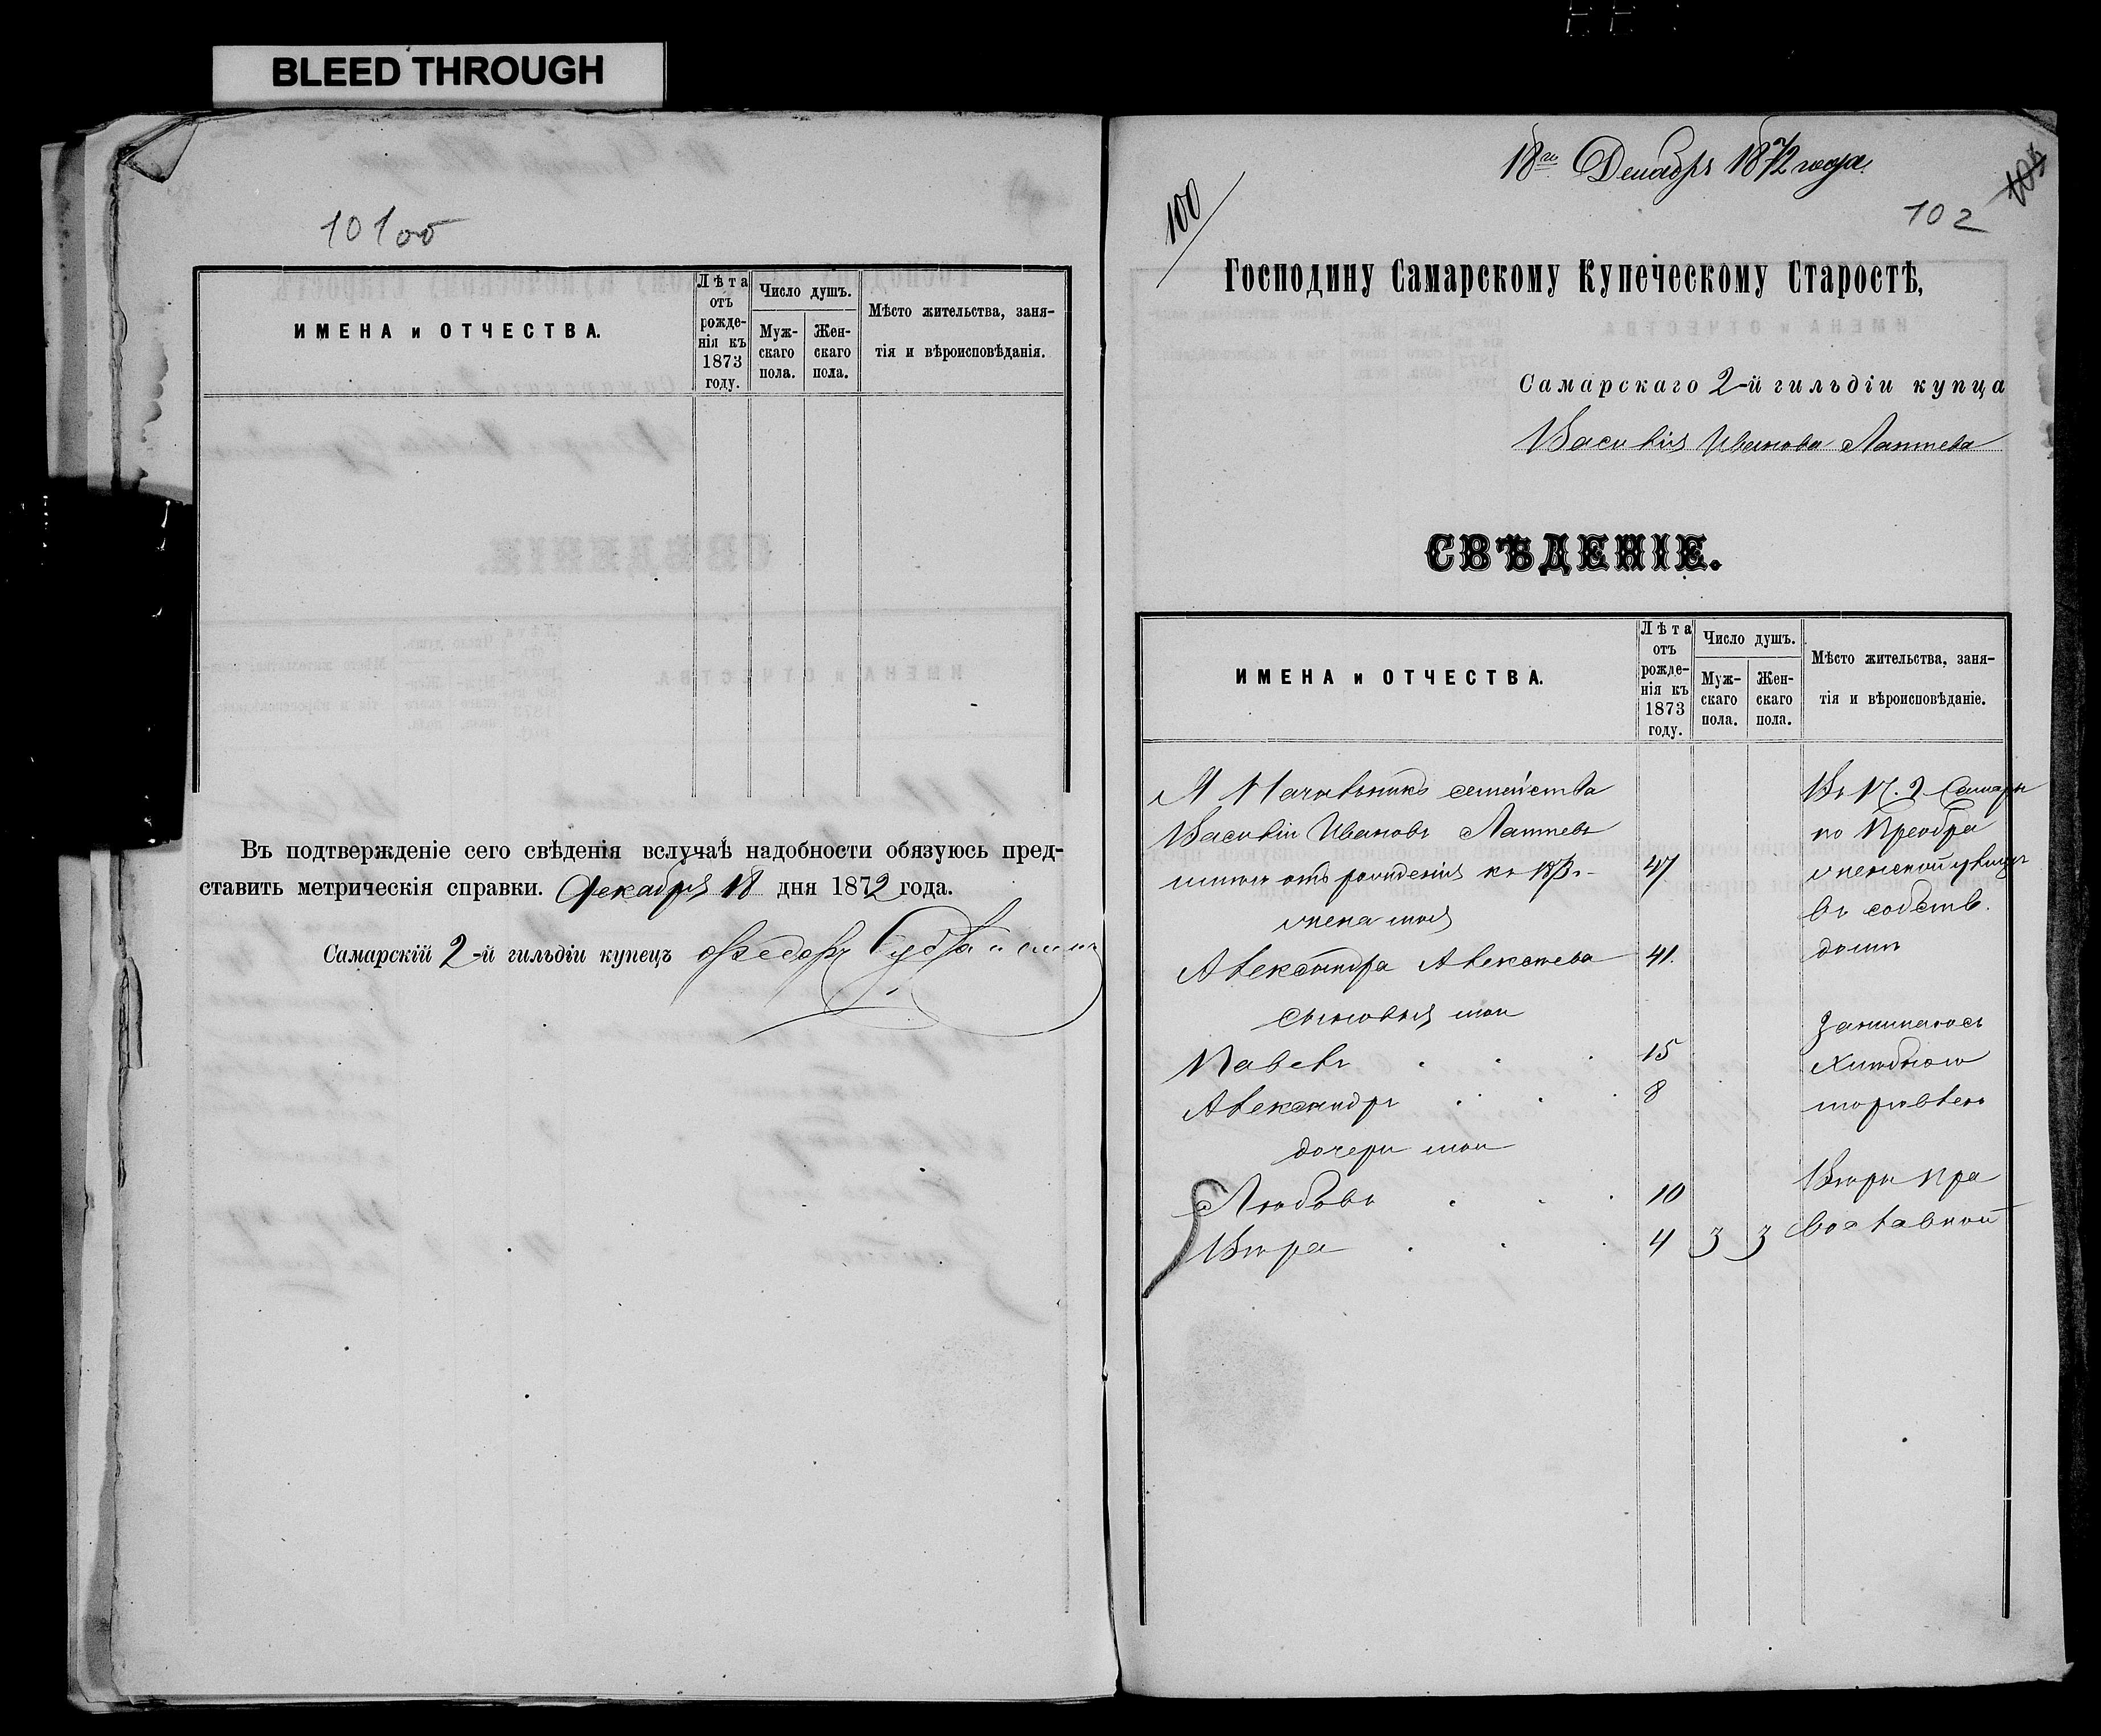 BLEED THROUGH
101 об
ИМЕНА и ОТЧЕСТВА.
Лѣта отъ рожде-нія къ 1873 году.
Число душъ.
Муж-скаго пола.
Жен-скаго пола.
Мѣсто жительства, заня-
тія и вѣроисповѣданія.
Въ подтвержденіе сего свѣденія вслучаѣ надобности обязуюсь пред-
ставить метрическія справки. Декабря 18 дня 1872 года.
Самарскій 2-й гильдіи купецъ Федоръ
18го Декабря 1872 года
100
102
Господину Самарскому Купеческому Старостѣ,
Самарскаго 2-й гильдіи купца
Василія Иванова Лаптева
СВѢДЕНІЕ.
ИМЕНА и ОТЧЕСТВА.
Лѣта отъ рожде-нія къ 1873 году.
Число душъ.
Муж-скаго пола.
Жен-скаго пола.
Мѣсто жительства, заня-
тія и вѣроисповѣданіе.
Я Начальникъ семейства
Василій Ивановъ Лаптевъ
отъ рожденія къ 47
жена моя
Александра Алексѣева 41.
сыновья мои
Павелъ 15
Александръ 8
дочери мои
Любовь 10
Вѣра 4 3 3
Въ Самарѣ
по Преобра
женской улицѣ
въ собств.
домѣ
Занимаюсь
Хлѣбною
торговлею
Вѣры Пра
вославной